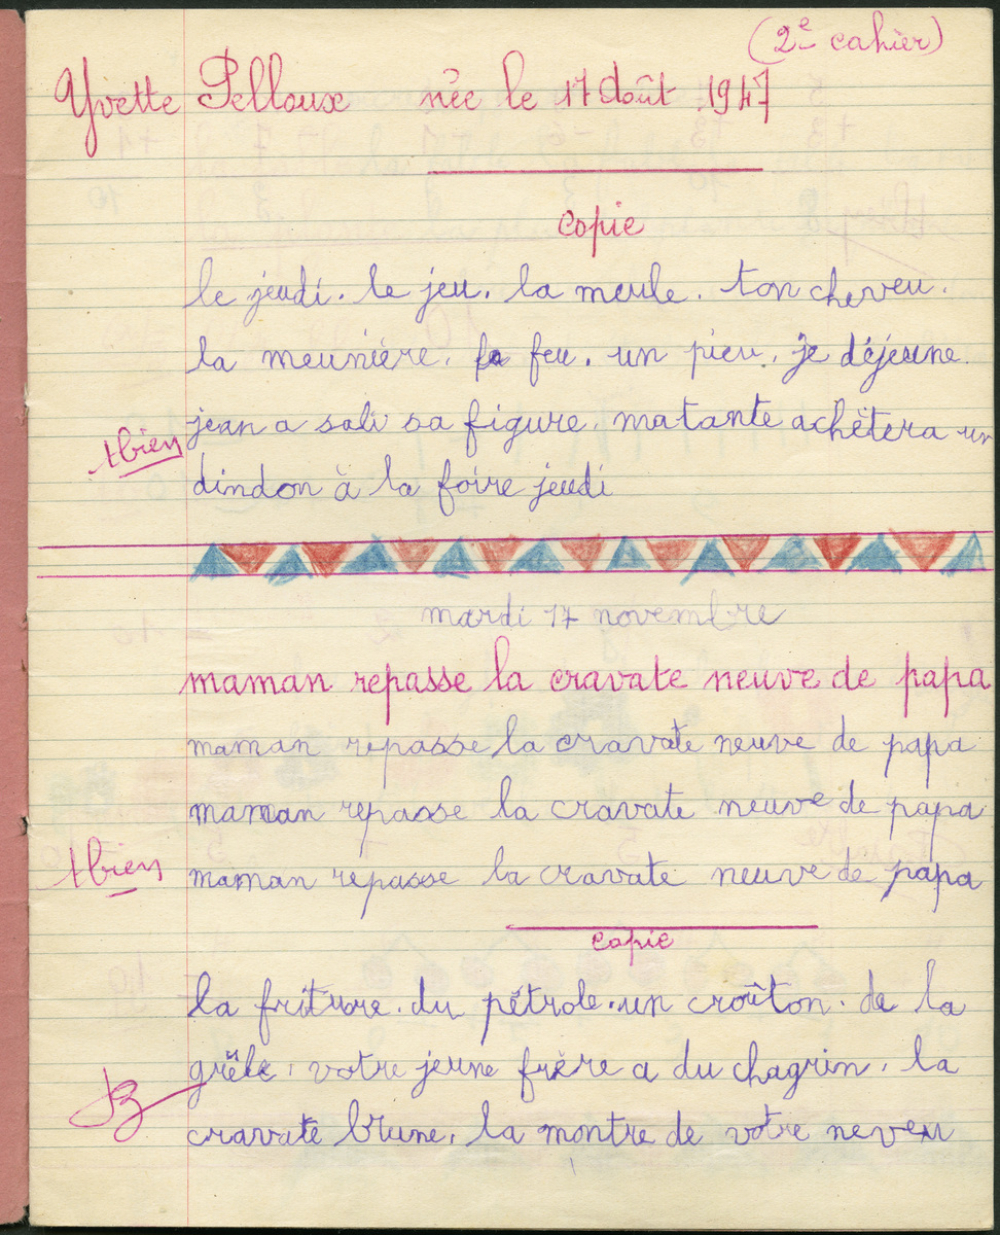 (2e cahier)
Yvette Pelloux née le 17 Août 1947
copie
le jeudi. le jeu. la meule. ton cheveu.
la meunière. feu. un pieu. je déjeune.
jean a sali sa figure. matante achètera un
tbien
dindon à la foire jeudi
mardi 17 novembre
maman repasse la cravate neuve de papa
maman repasse la cravate neuve de papa
maman repasse la cravate neuve de papa
tbien
maman repasse la cravate neuve de papa
copie
la friture. du pétrole. un croûton. de la
grêle. votre jeune frère a du chagrin. la
tB
cravate brune. la montre de votre neveu